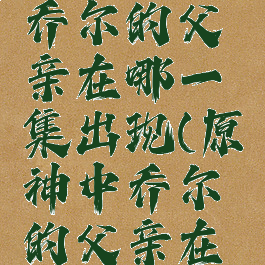 乔尔的父
亲在哪一
集出现(原
神中乔尔
的父亲在